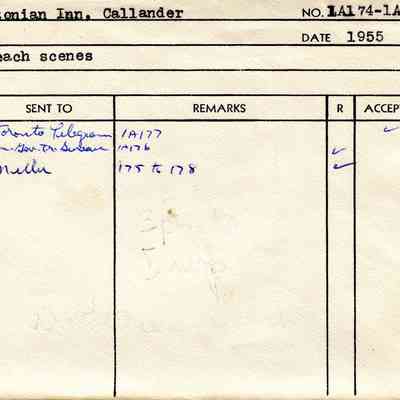 onian Inn, Callander NO. 1A174-1A
DATE 1955
each scenes
SENT TO REMARKS R ACCEP
oronto Telegram 1A177 ✓
Gov. Tr. Bureau 1A176 ✓
Miller 175 to 178 ✓